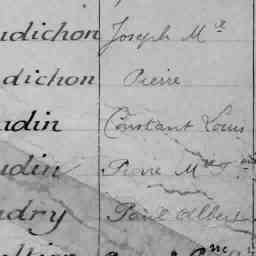 udichon Joseph M^el
dichon Pierre
udin Constant Louis
udin Pierre M^ie
udry Paul Albert